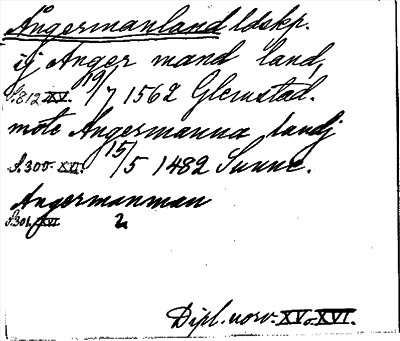 Ångermanland ldskp.
ij Anger mand land,
S.812 XV. 19/7 1562 Glemstad.
mote Angermanna landj
S.300. XVI. 15/5 1482 Sunne.
Angermanman
S.301. XVI. 2
Dipl. norv. XV o. XVI.